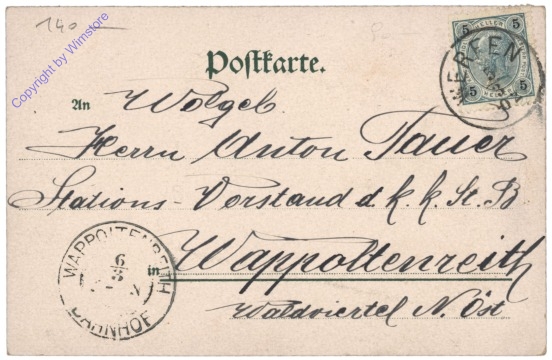 140 —
Copyright by Wimstore
5 HELLER 5
5 5
WERFEN
Postkarte.
An Wolgeb.
Herrn Anton Tauer
Stations-Vorstand d. k. k. St. B
in Wappoltenreith
Waldviertel N. Öst
WAPPOLTENREITH
6
3
BAHNHOF